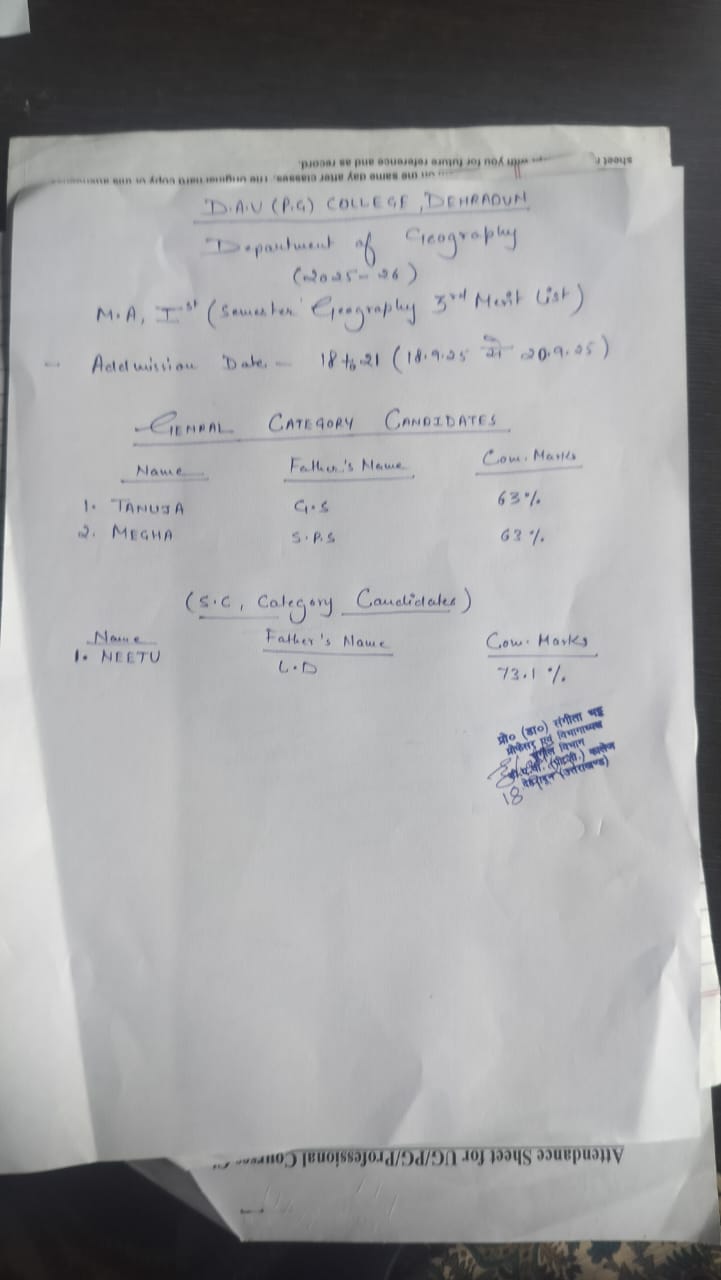 sheet with you for future reference and as record.
on the same day after classes. The original hard copy of this
D.A.V (P.G) COLLEGE, DEHRADUN
Department of Geography
(2025-26)
M.A, Ist (Semester Geography 3rd Merit List)
- Addmission Date - 18 to 21 (18.9.25 से 20.9.25)
GENRAL CATEGORY CANDIDATES
Name Father's Name Com. Marks
1. TANUJA G.S 63%
2. MEGHA S.P.S 63%
(S.C, Category Candidates)
Name Father's Name Com. Marks
1. NEETU L.D 73.1%
प्रो० (डा०) संगीता भट्ट
प्रोफेसर एवं विभागाध्यक्ष
भूगोल विभाग
डी.ए.वी. (पी.जी.) कालेज
देहरादून (उत्तराखण्ड)
18
Attendance Sheet for UG/PG/Professional Courses